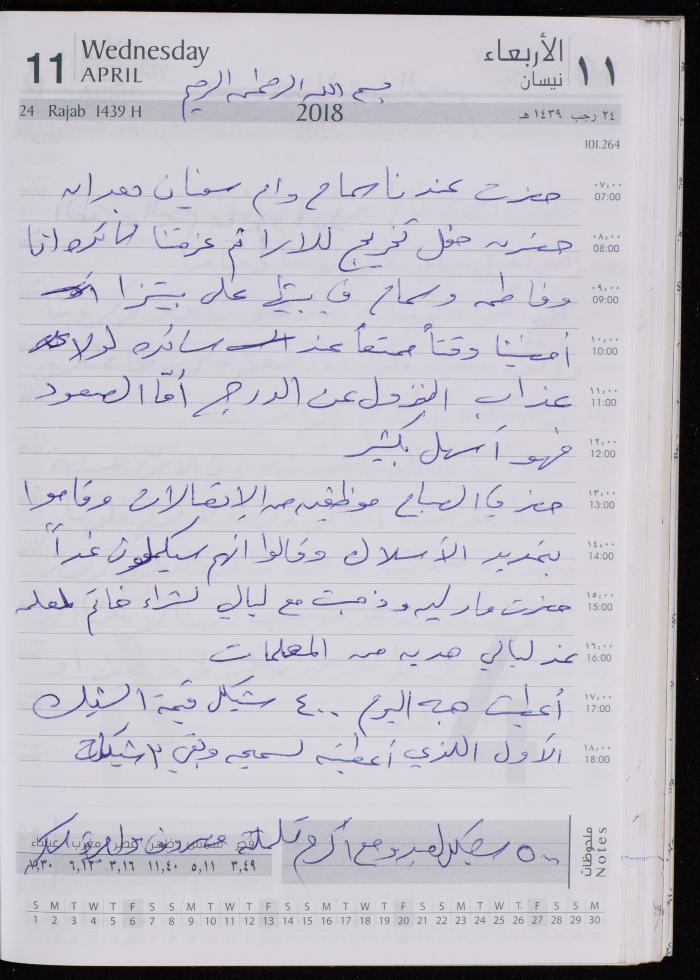 11 Wednesday APRIL
الأربعاء نيسان ١١
بسم الله الرحمن الرحيم
24 Rajab 1439 H 2018 ٢٤ رجب ١٤٣٩ هـ
101.264
حضرت عندنا سماح وام سفيان وبعد ان
٠٧:٠٠ 07:00
حضرت حفل تخريج للارا ثم عزمتنا انا
٠٨:٠٠ 08:00
وفاطمه وسماح في بيتي على بيتزا
٠٩:٠٠ 09:00
أمضينا وقتاً ممتعاً عند سائده لولا
١٠:٠٠ 10:00
عذاب النزول عن الدرج أمّا الصعود
١١:٠٠ 11:00
فهو أسهل بكثير
١٢:٠٠ 12:00
حضر في الصباح موظفين من الإتصالات وقاموا
١٣:٠٠ 13:00
بتمديد الأسلاك وقالوا انهم سيكملون غداً
١٤:٠٠ 14:00
حضرت مارليه وذهبت مع ليالي لشراء خاتم لمعلمه
١٥:٠٠ 15:00
عند ليالي هديه من المعلمات
١٦:٠٠ 16:00
أعطيت هبه اليوم ٤٠٠ شيكل قيمة الشيك
١٧:٠٠ 17:00
الأول اللذي أعطيته لسميحه وبقي ٣ شيكات
١٨:٠٠ 18:00
٥٠٠ شيكل ومع أكرم تكملة مصروف
ملحوظات Notes
فجر شمس ظهر عصر مغرب عشاء
٣,٤٩ ٥,١١ ١١,٤٠ ٣,١٦ ٦,١٣
S M T W T F S S M T W T F S S M T W T F S S M T W T F S S M
1 2 3 4 5 6 7 8 9 10 11 12 13 14 15 16 17 18 19 20 21 22 23 24 25 26 27 28 29 30